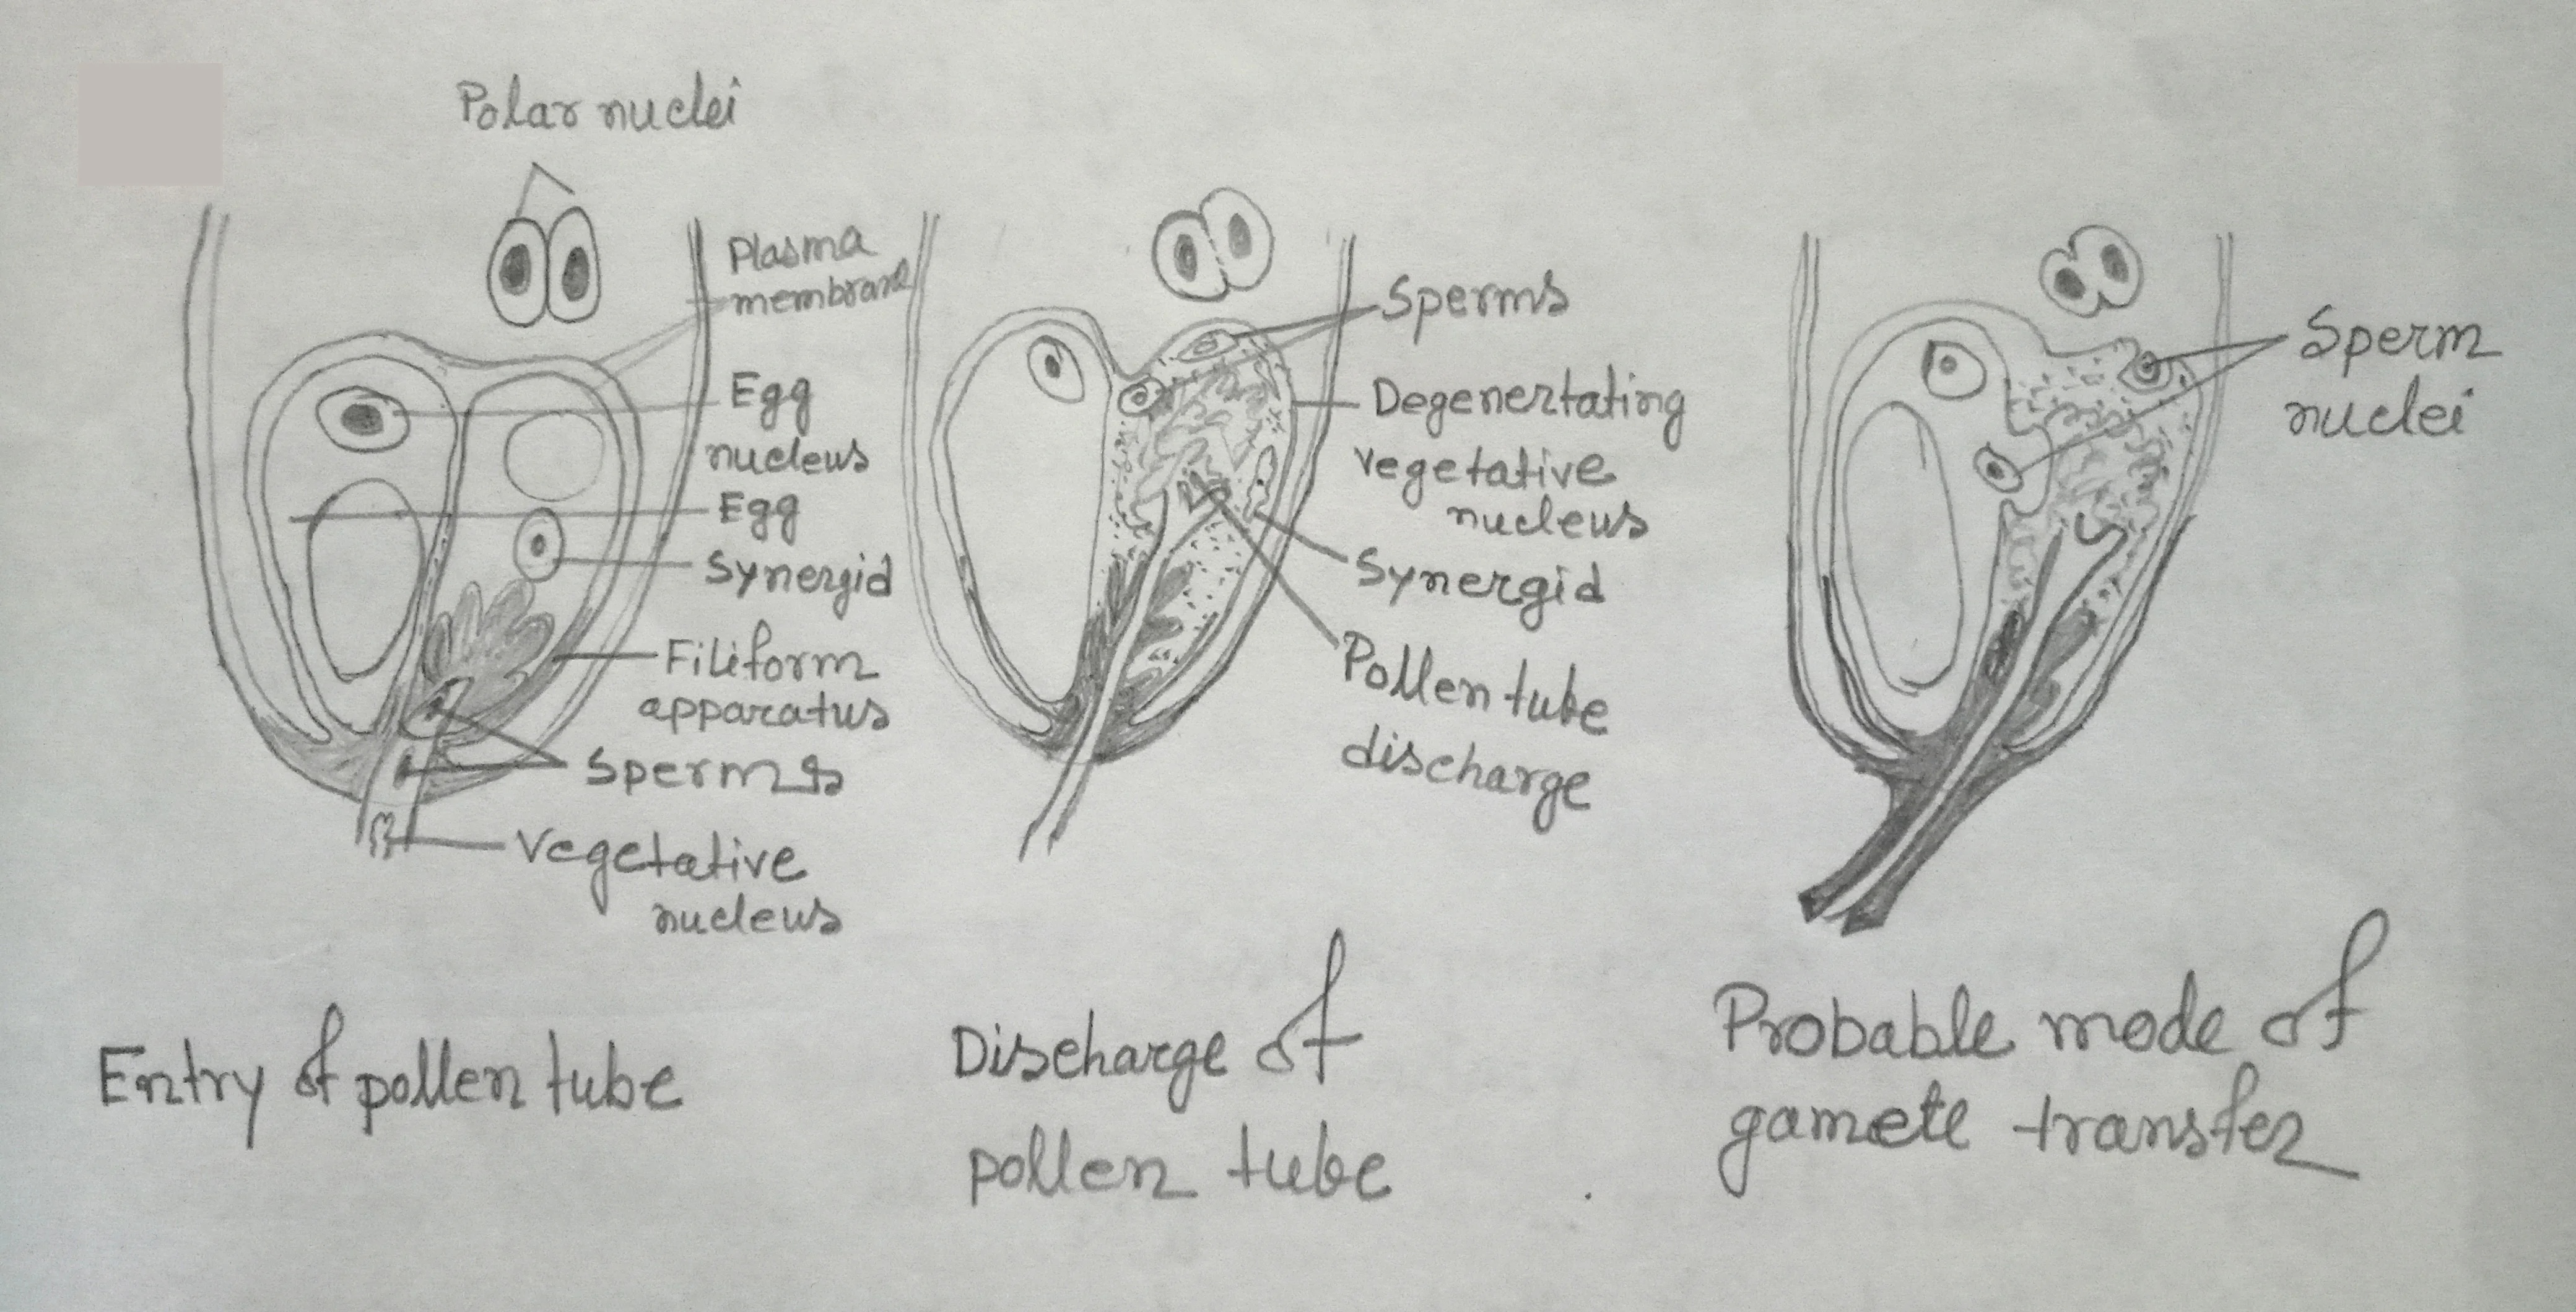 Polar nuclei
Plasma
membrane
Egg
nucleus
Egg
Synergid
Filiform
apparatus
Sperms
Vegetative
nucleus
Entry of pollen tube
Sperms
Degenertating
vegetative
nucleus
Synergid
Pollen tube
discharge
Discharge of
pollen tube
Sperm
nuclei
Probable mode of
gamete transfer